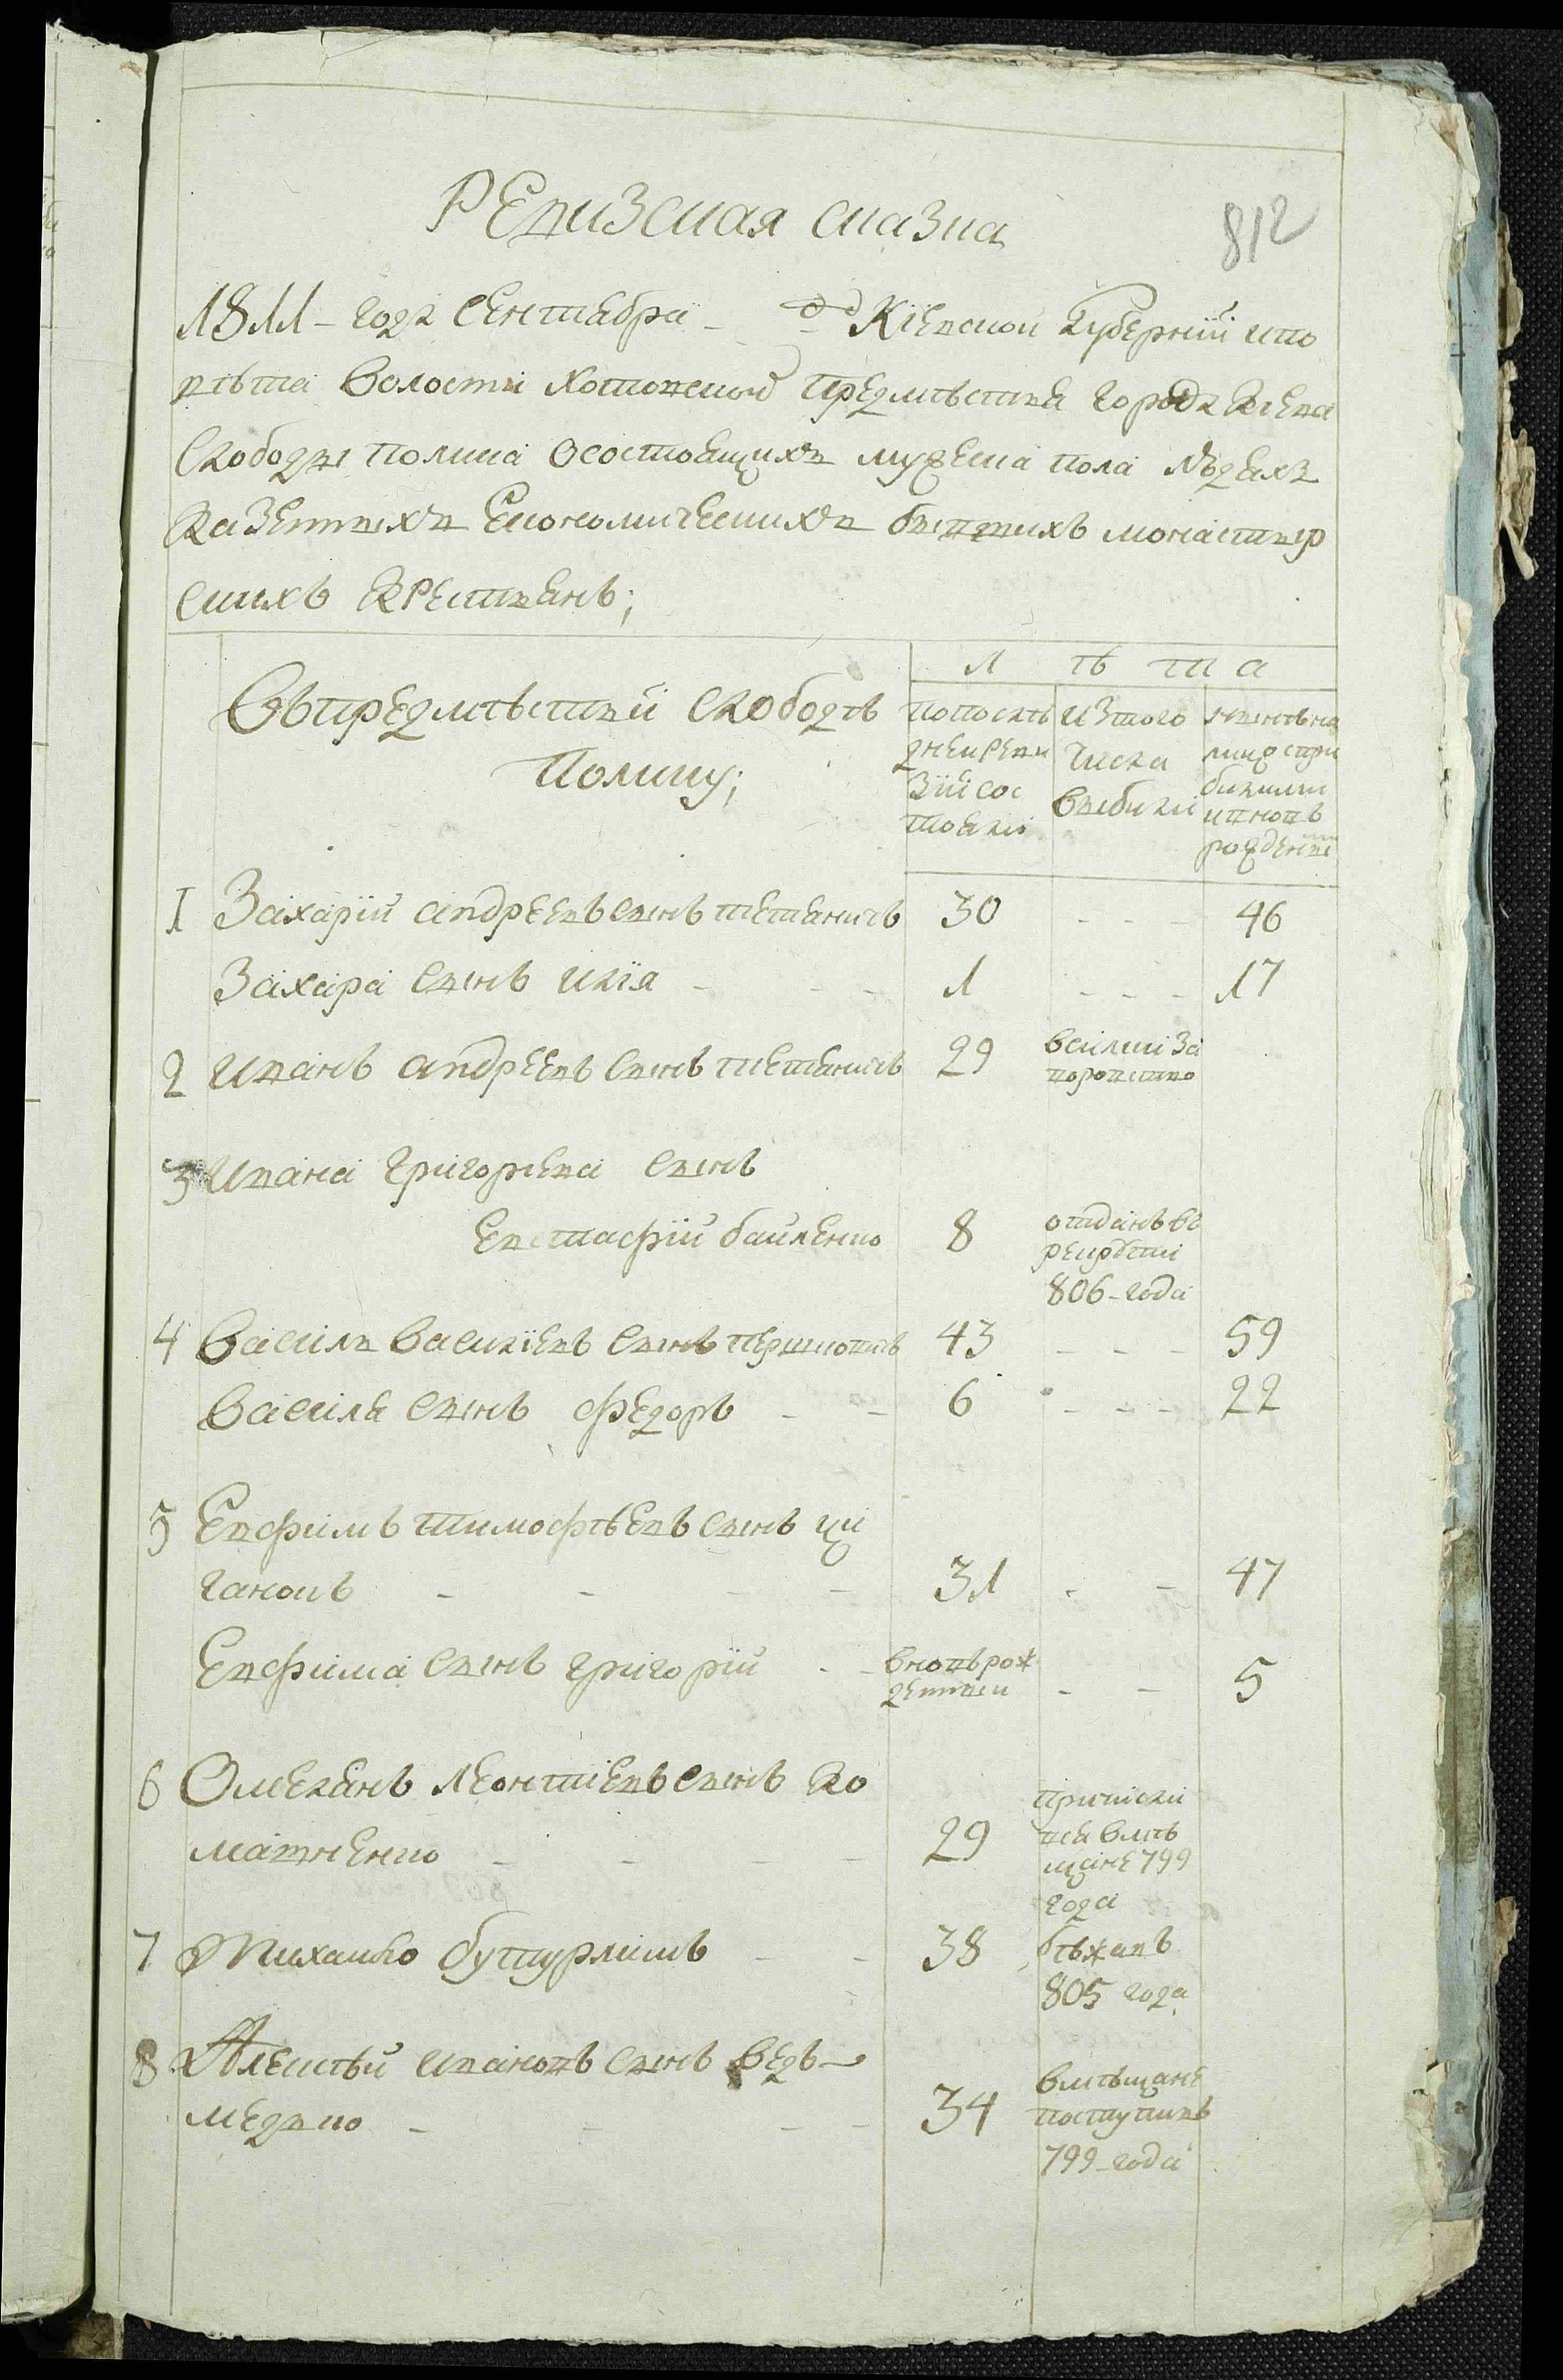 Ревизская сказка
812
1811 - года Сентября - дд Кіевской Губерніи ипо
вѣта Волости Хотовской предмѣстья города Кіева
Слободы Полика Осостоящихъ мужеска пола людяхъ
Казенныхъ Економическихъ бывшихъ монастыр
скихъ крестьянъ;
Л ѣ т а
Въпредмѣстьи слободѣ
Полику;
попослѣ
дней реви
зіи сос
тояли
изтого
числа
выбили
нынѣна
лицо спри
билими
ивновь
рожденни
1 Захарій андреевъ сынъ тетянич 30 - - - 46
Захара сынъ илія - - - 1 - - - 17
2 иванъ андреевъ сынъ тетянич 29
порочство
3 ивана григорьева сынъ
Евстафій байленко 8
отданъ въ
рекрѵты
806 - года
4 василь василіевъ сынъ 43 - - - 59
василя сынъ федоръ - - 6 - - - 22
5 Евфимъ тимофѣевъ сынъ ци
ганокъ - - - - 31 - - 47
Евфима сынъ григорій - -
вновь рож
денный - - 5
6 Омелянъ леонтіевъ сынъ ко
матненко - - - - 29
причисли
лся вмѣ
щане 799
года
7 Михайло бутурлимъ - - 38
бѣжавъ
805 года
8 Алексѣй ивановъ сынъ ведъ-
медько - - - - 34
вмѣщане
поступивъ
799 - года